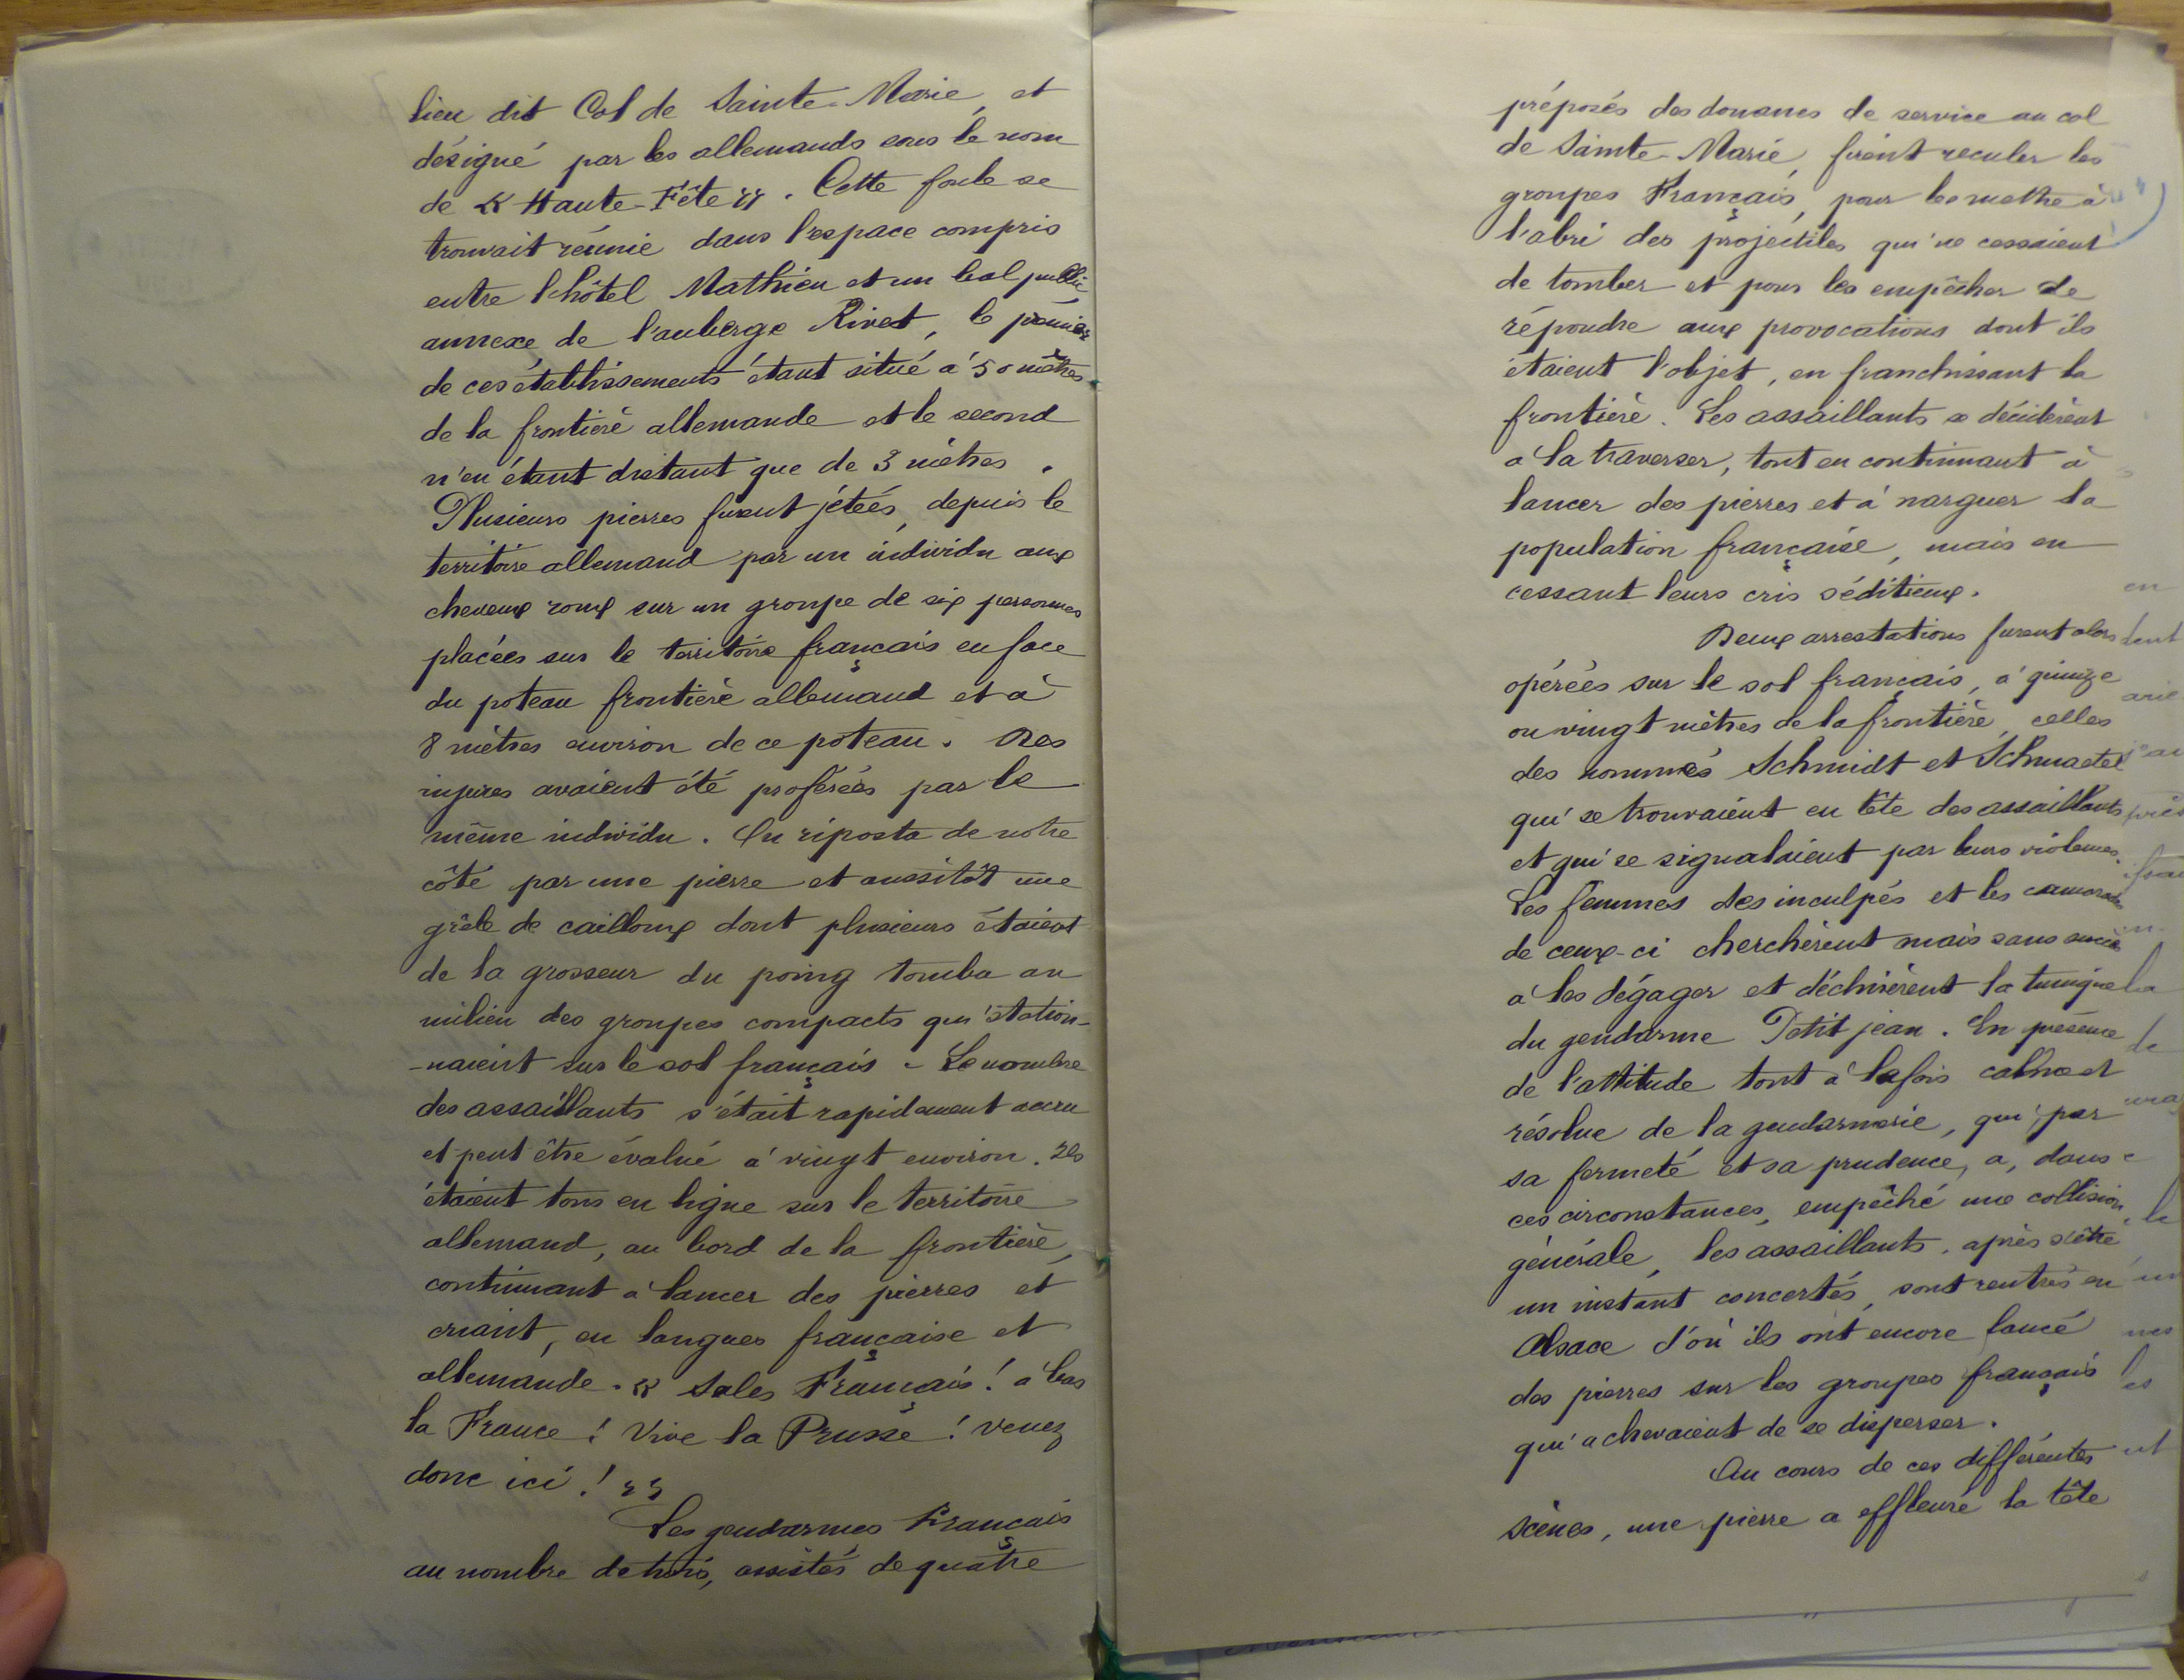 lieu dit Col de Sainte-Marie, et
désigné par les allemands sous le nom
de « Haute-Fête ». Cette foule se
trouvait réunie dans l'espace compris
entre l'hôtel Mathieu et un bal public
annexe de l'auberge Rivet, le premier
de ces établissements étant situé à 50 mètres
de la frontière allemande et le second
n'en étant distant que de 3 mètres.
Plusieurs pierres furent jetées, depuis le
territoire allemand par un individu aux
cheveux roux sur un groupe de six personnes
placées sur le territoire français en face
du poteau frontière allemand et à
8 mètres environ de ce poteau. Des
injures avaient été proférées par le
même individu. On riposta de notre
côté par une pierre et aussitôt une
grêle de cailloux dont plusieurs étaient
de la grosseur du poing tomba au
milieu des groupes compacts qui station-
-naient sur le sol français. Le nombre
des assaillants s'était rapidement accru
et peut être évalué à vingt environ. Ils
étaient tous en ligne sur le territoire
allemand, au bord de la frontière,
continuant à lancer des pierres et
criant, en langues française et
allemande. « Sales Français ! à bas
la France ! Vive la Prusse ! venez
donc ici ! »
Les gendarmes Français
au nombre de trois, assistés de quatre
préposés des douanes de service au col
de Sainte-Marie, firent reculer les
groupes Français, pour les mettre à
l'abri des projectiles qui ne cessaient
de tomber et pour les empêcher de
répondre aux provocations dont ils
étaient l'objet, en franchissant la
frontière. Les assaillants se décidèrent
à la traverser, tout en continuant à
lancer des pierres et à narguer la
population française, mais en
cessant leurs cris séditieux.
Deux arrestations furent alors
opérées sur le sol français, à quinze
ou vingt mètres de la frontière, celles
des nommés Schmidt et Schmaetel
qui se trouvaient en tête des assaillants
et qui se signalaient par leurs violences.
Les femmes des inculpés et les camarades
de ceux-ci cherchèrent mais sans succès
à les dégager et déchirèrent la tunique
du gendarme Petitjean. En présence
de l'attitude tout à la fois calme et
résolue de la gendarmerie, qui, par
sa fermeté et sa prudence, a, dans
ces circonstances, empêché une collision
générale, les assaillants, après s'être
un instant concertés, sont rentrés en
Alsace d'où ils ont encore lancé
des pierres sur les groupes français
qui achevaient de se disperser.
Au cours de ces différentes
scènes, une pierre a effleuré la tête